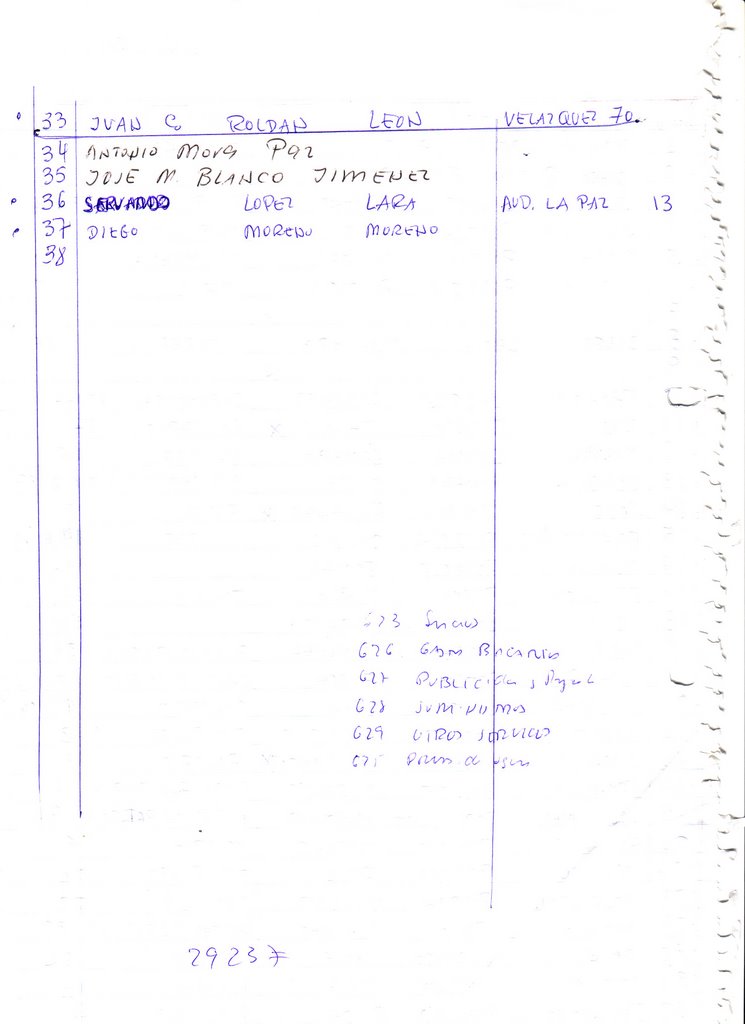 33 JUAN C. ROLDAN LEON VELAZQUEZ 70.
34 ANTONIO MORA PAZ
35 JOSE M. BLANCO JIMENEZ
36 SERVANDO LOPEZ LARA AVD. LA PAZ 13
37 DIEGO MORENO MORENO
38
623
626
627 PUBLICIDAD y
628 SUMINISTROS
629 OTROS SERVICIOS
625
29237